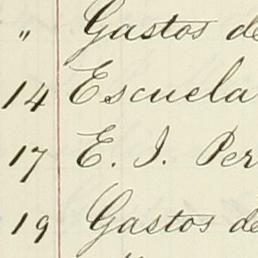 " Gastos de
14 Escuela
17 E. I. Per
19 Gastos de